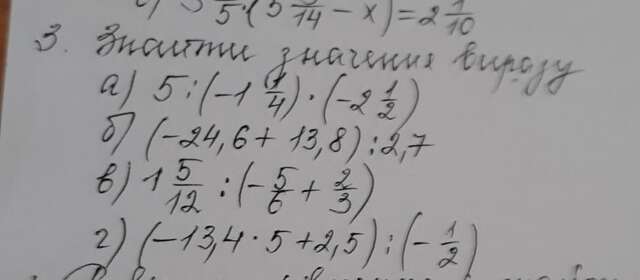 5 · (5 /14 − x) = 2 1/10
3. Знайти значення виразу
а) 5 : (−1 1/4) · (−2 1/2)
б) (−24,6 + 13,8) : 2,7
в) 1 5/12 : (−5/6 + 2/3)
г) (−13,4 · 5 + 2,5) : (−1/2)